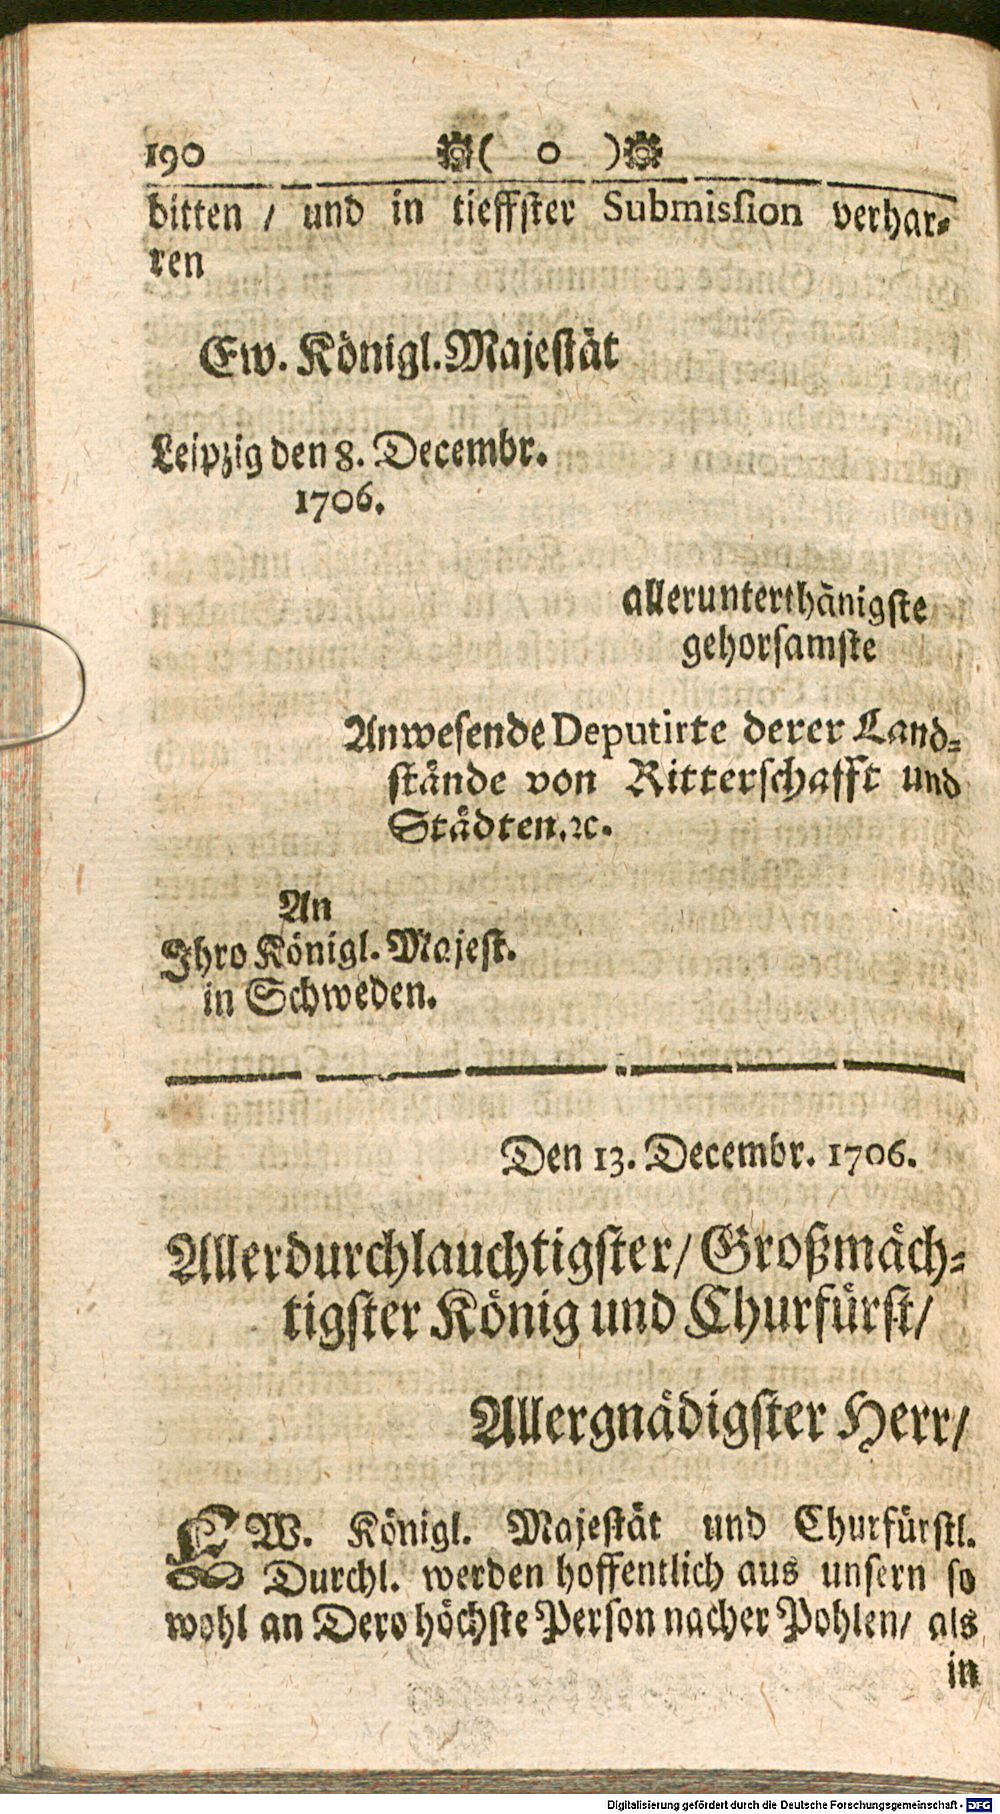 190 ( o )
bitten / und in tieffster Submission verhar-
ren
Ew. Königl. Majestät
Leipzig den 8. Decembr.
1706.
allerunterthänigste
gehorsamste
Anwesende Deputirte derer Land-
stände von Ritterschafft und
Städten, ꝛc.
An
Ihro Königl. Majest.
in Schweden.
Den 13. Decembr. 1706.
Allerdurchlauchtigster / Großmäch-
tigster König und Churfürst /
Allergnädigster Herr /
EW. Königl. Majestät und Churfürstl.
Durchl. werden hoffentlich aus unsern so
wohl an Dero höchste Person nacher Pohlen / als
in
Digitalisierung gefördert durch die Deutsche Forschungsgemeinschaft - DFG